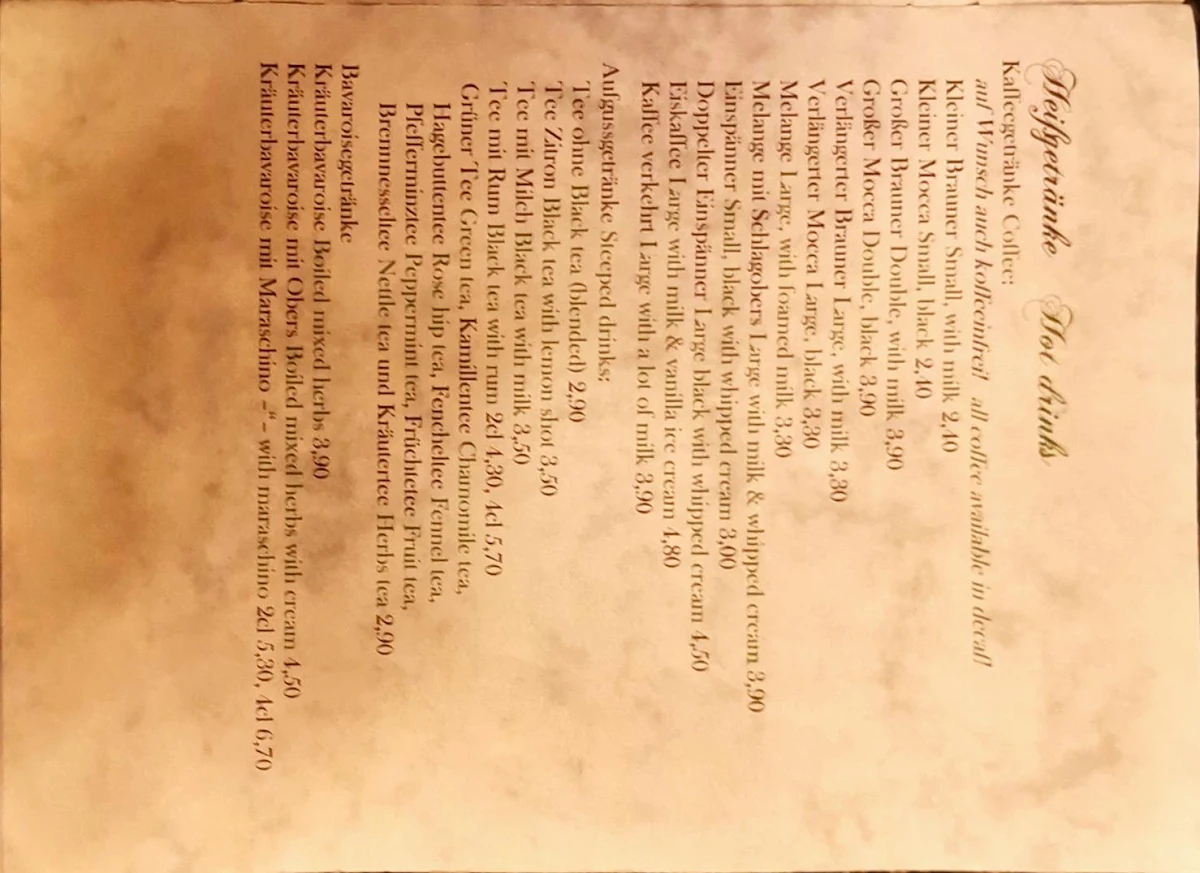 Heißgetränke Hot drinks
Kaffeegetränke Coffee:
auf Wunsch auch koffeeinfrei! all coffee available in decaf!
Kleiner Brauner Small, with milk 2,40
Kleiner Mocca Small, black 2,40
Großer Brauner Double, with milk 3,90
Großer Mocca Double, black 3,90
Verlängerter Brauner Large, with milk 3,30
Verlängerter Mocca Large, black 3,30
Melange Large, with foamed milk 3,30
Melange mit Schlagobers Large with milk & whipped cream 3,90
Einspänner Small, black with whipped cream 3,00
Doppelter Einspänner Large black with whipped cream 4,50
Eiskaffee Large with milk & vanilla ice cream 4,80
Kaffee verkehrt Large with a lot of milk 3,90
Aufgussgetränke Steeped drinks:
Tee ohne Black tea (blended) 2,90
Tee Zitron Black tea with lemon shot 3,50
Tee mit Milch Black tea with milk 3,50
Tee mit Rum Black tea with rum 2cl 4,30, 4cl 5,70
Grüner Tee Green tea, Kamillentee Chamomile tea,
Hagebuttentee Rose hip tea, Fencheltee Fennel tea,
Pfefferminztee Peppermint tea, Früchtetee Fruit tea,
Brennnesseltee Nettle tea und Kräutertee Herbs tea 2,90
Bavaroisegetränke
Kräuterbavaroise Boiled mixed herbs 3,90
Kräuterbavaroise mit Obers Boiled mixed herbs with cream 4,50
Kräuterbavaroise mit Maraschino -"- with maraschino 2cl 5,30, 4cl 6,70